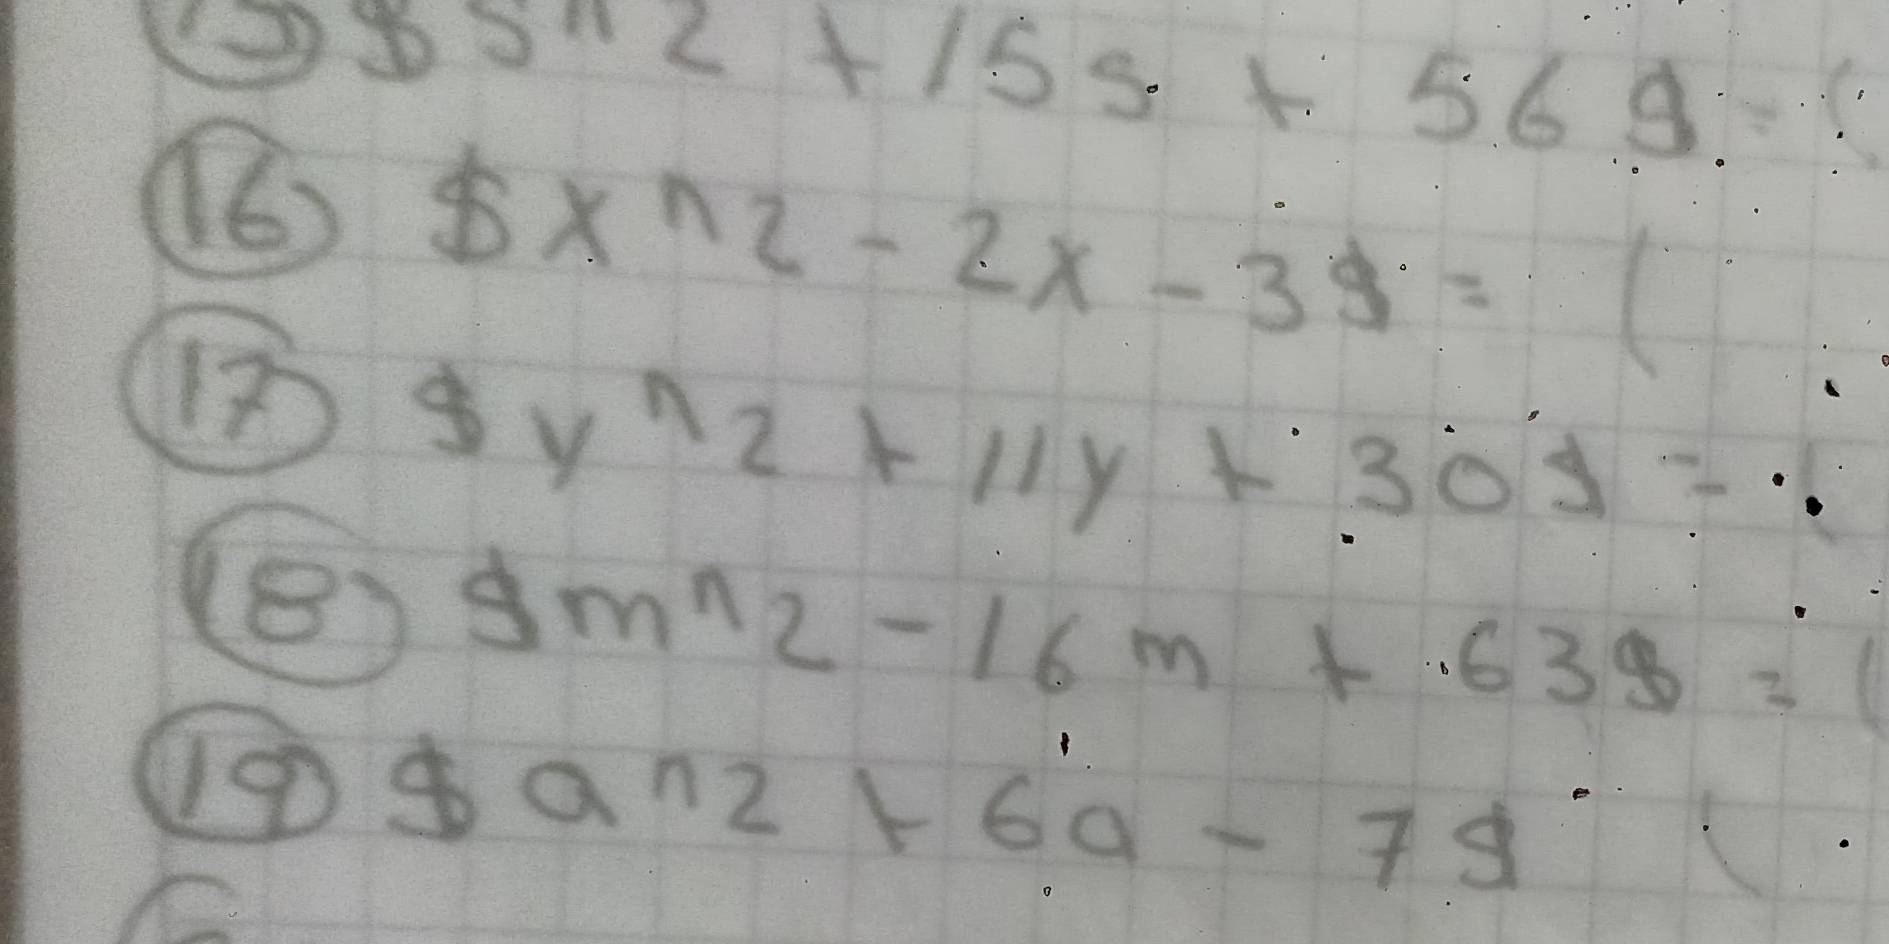 15 $ s^2 + 15s + 56 $ = (
16 $ x^2 - 2x - 3 $ = (
17 $ y^2 + 11y + 30 $ = (
18 $ m^2 - 16m + 63 $ = (
19 $ a^2 + 6a - 7 $ (